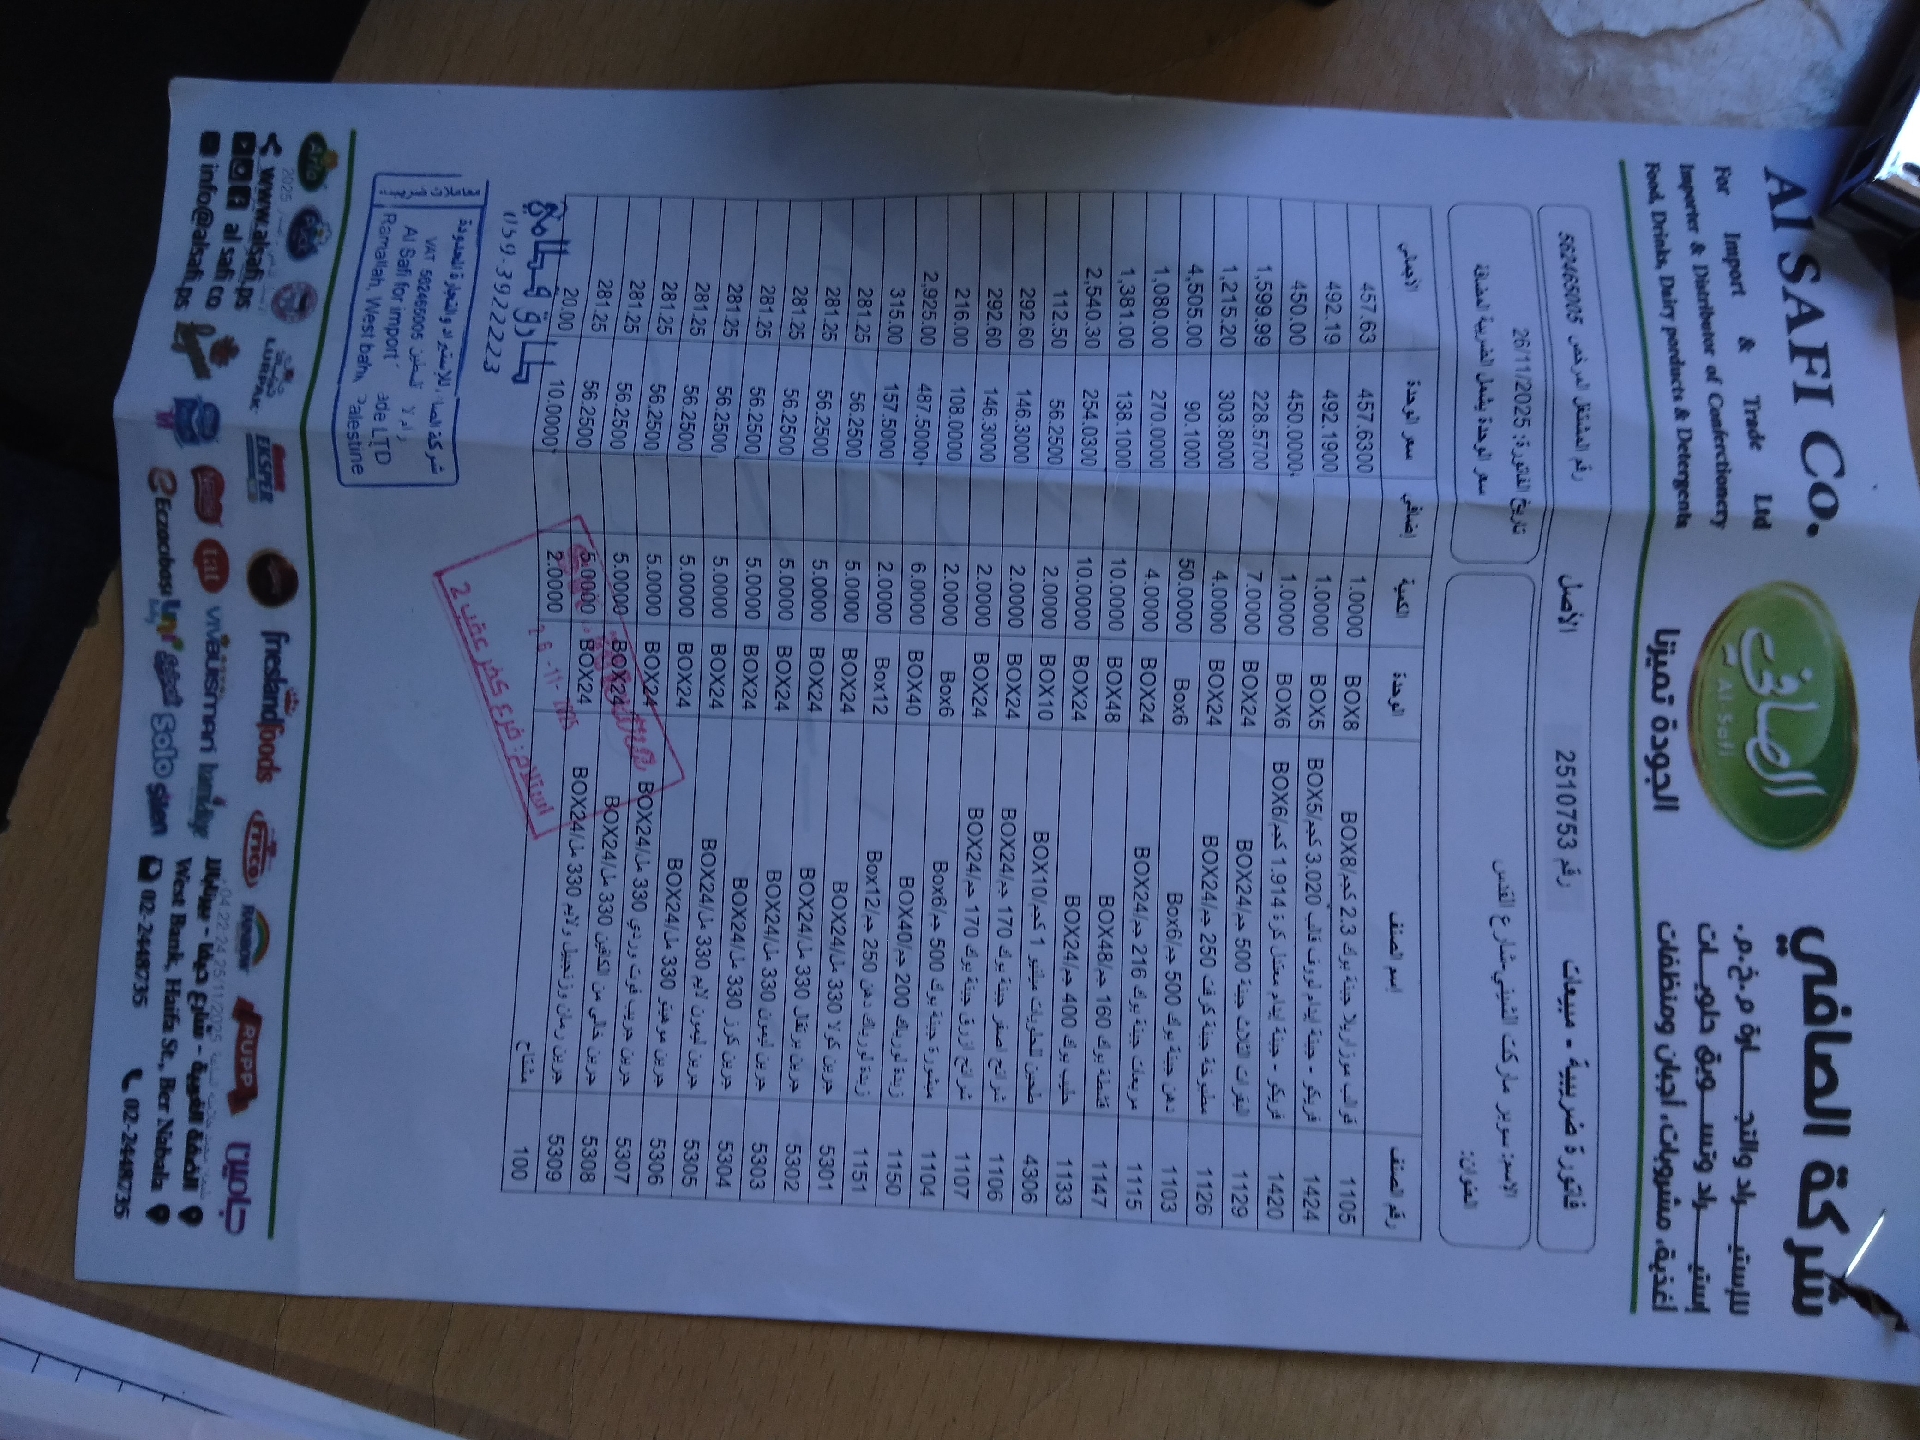 Al SAFI Co.
For Import & Trade Ltd
Importer & Distributor of Confectionery
Food, Drinks, Dairy porducts & Detergents
الصافي
Al Safi
الجودة تميزنا
شركة الصافي
للإستيـــراد والتجـــارة م.خ.م.
إستيـــراد وتســـويق حلويـــات
أغذية، مشروبات، أجبان ومنظفات
فاتورة ضريبية - مبيعات رقم 2510753 الأصل رقم المشتغل المرخص 562465005
الاسم: سوبر ماركت الشيني-شارع القدس
العنوان:
تاريخ الفاتورة: 26/11/2025
سعر الوحدة يشمل الضريبة المضافة
رقم الصنف اسم الصنف الوحدة الكمية إضافي سعر الوحدة الاجمالي
1105 قوالب موزاريلا جبنة بوك 2.3 كجم/BOX8 BOX8 1.0000 457.6300 457.63
1424 فريكو - جبنة ايدام لووف قالب 3.020 كجم/BOX5 BOX5 1.0000 492.1900 492.19
1420 فريكو - جبنة ايدام معتقل كرة 1.914 كجم/BOX6 BOX6 1.0000 450.0000 450.00
1129 البقرات الثلاث جبنة 500 جم/BOX24 BOX24 7.0000 228.5700 1,599.99
1126 مطبوخة جبنة كرفت 250 جم/BOX24 BOX24 4.0000 303.8000 1,215.20
1103 دهن جبنة بوك 500 جم/Box6 Box6 50.0000 90.1000 4,505.00
1115 مربعات جبنة بوك 216 جم/BOX24 BOX24 4.0000 270.0000 1,080.00
1147 قشطة بوك 160 جم/BOX48 BOX48 10.0000 138.1000 1,381.00
1133 حليب بوك 400 جم/BOX24 BOX24 10.0000 254.0300 2,540.30
4306 طحين للحلويات ميلانو 1 كجم/BOX10 BOX10 2.0000 56.2500 112.50
1106 شرائح اصفر جبنة بوك 170 جم/BOX24 BOX24 2.0000 146.3000 292.60
1107 شرائح ازرق جبنة بوك 170 جم/BOX24 BOX24 2.0000 146.3000 292.60
1104 مبشورة جبنة بوك 500 جم/Box6 Box6 2.0000 108.0000 216.00
1150 زبدة لورباك 200 جم/BOX40 BOX40 6.0000 487.5000 2,925.00
1151 زبدة لورباك دهن 250 جم/Box12 Box12 2.0000 157.5000 315.00
5301 جرين كولا 330 مل/BOX24 BOX24 5.0000 56.2500 281.25
5302 جرين برتقال 330 مل/BOX24 BOX24 5.0000 56.2500 281.25
5303 جرين ليمون 330 مل/BOX24 BOX24 5.0000 56.2500 281.25
5304 جرين كرز 330 مل/BOX24 BOX24 5.0000 56.2500 281.25
5305 جرين ليمون لايم 330 مل/BOX24 BOX24 5.0000 56.2500 281.25
5306 جرين موهيتو 330 مل/BOX24 BOX24 5.0000 56.2500 281.25
5307 جرين جريب فروت وردي 330 مل/BOX24 BOX24 5.0000 56.2500 281.25
5308 جرين خالي من الكافيين 330 مل/BOX24 BOX24 5.0000 56.2500 281.25
5309 جرين رمان وزنجبيل ولايم 330 مل/BOX24 BOX24 5.0000 56.2500 281.25
100 مشتاح 2.0000 10.0000 20.00
26-11-2025
استلام: فرع كفر عقب 2
059-3922223
للاستيراد والتجارة المحدودة
VAT 562465005
Al Safi for import
LTD
Ramallah, West bank, Palestine
Arla
LURPAK
EKSPER
frieslandfoods
frico
RAINBOW
PUPP
جاردين
tat
vivausmeri
Eczacıbaşı
Uni
Solo
sten
www.alsafi.ps
al safi co
info@alsafi.ps
الضفة الغربية - شارع حيفا - بيرنبالا
West Bank, Haifa St., Ber Nabala
02-2448735 02-2448736